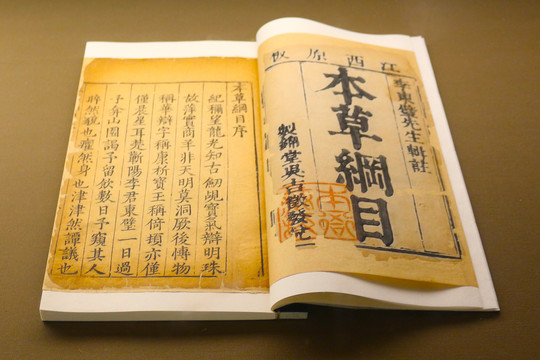 江西原板
李東璧先生輯註
本草綱目
本草綱目序
紀稱望龍光知古劒覘寶氣辯明珠
故萍實商羊非天明莫洞厥後博物
稱華辯字稱康析寶玉稱倚頓亦僅
僅晨星耳楚蘄陽李君東璧一日過
予弇山園謁予留飲數日予窺其人
睟然貌也癯然身也津津然譚議也